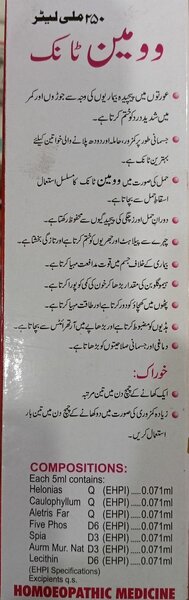 ۲۵۰ ملی لیٹر
وومین ٹانک
عورتوں میں پیچیدہ بیماریوں کی وجہ سے جوڑوں اور کمر
میں شدید درد کو ختم کرتا ہے۔
جسمانی طور پر کمزور، حاملہ اور دودھ پلانے والی خواتین کیلئے
بہترین ٹانک ہے۔
حمل کی صورت میں وومین ٹانک کا مسلسل استعمال
اسقاط حمل سے بچاتا ہے۔
دوران حمل اور زچگی کی پیچیدگیوں سے محفوظ رکھتا ہے۔
چہرے سے پیلاہٹ اور جھریوں کو ختم کرتا ہے اور تازگی بخشتا ہے۔
بیماری کے خلاف جسم میں قوت مدافعت مہیا کرتا ہے۔
ہیموگلوبن کی مقدار بڑھا کر خون کی کمی کو پورا کرتا ہے۔
پٹھوں میں کھچاؤ کو دور کرتا ہے اور طاقت مہیا کرتا ہے۔
ہڈیوں کو مضبوط کرتا ہے اور بڑھاپے میں آرتھرائٹس سے بچاتا ہے۔
دماغی اور جسمانی صلاحیتوں کو بڑھاتا ہے۔
خوراک:
ایک کھانے کے چمچ دن میں تین مرتبہ
زیادہ کمزوری کی صورت میں دو کھانے کے چمچ دن میں تین بار
استعمال کریں۔
COMPOSITIONS:
Each 5ml contains:
Helonias Q (EHPI).....0.071ml
Caulophyllum Q (EHPI).....0.071ml
Aletris Far Q (EHPI).....0.071ml
Five Phos D6 (EHPI).....0.071ml
Spia D3 (EHPI).....0.071ml
Aurm Mur. Nat D3 (EHPI).....0.071ml
Lecithin D6 (EHPI).....0.071ml
(EHPI Specifications)
Excipients q.s.
HOMOEOPATHIC MEDICINE